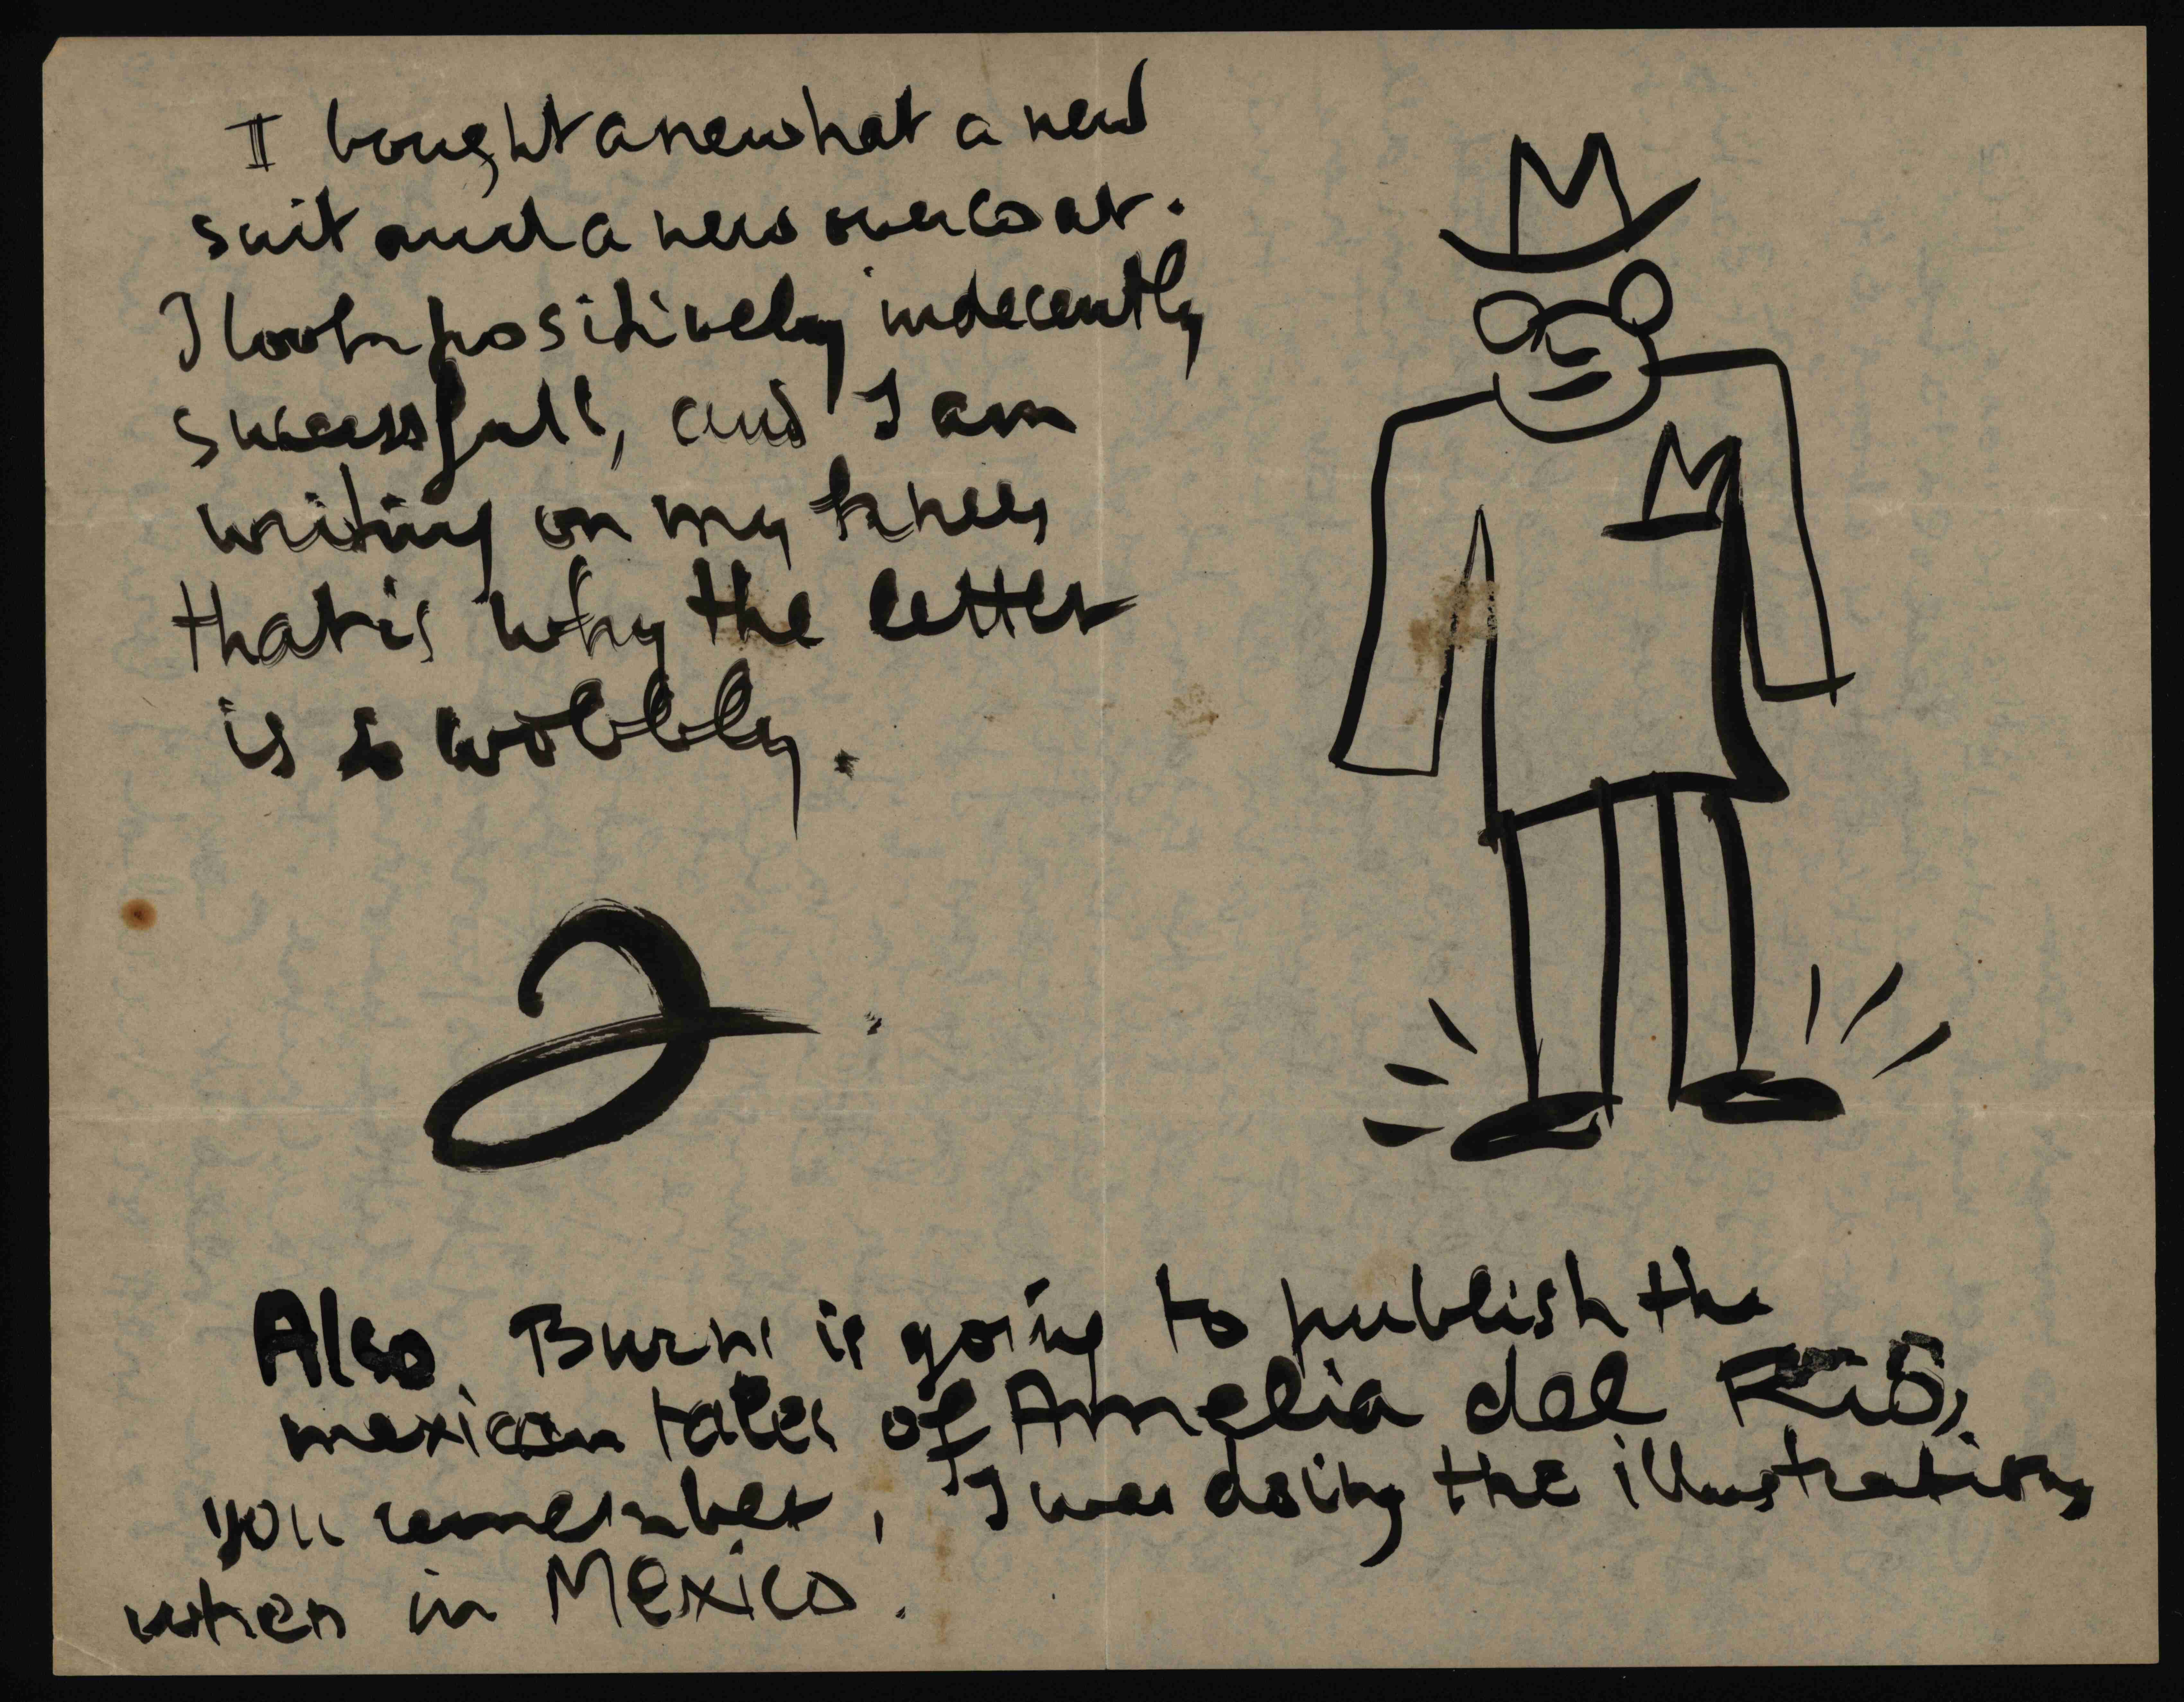 I bought a new hat a new
suit and a new overcoat.
I look positively indecently
successfull, and I am
writing on my knees
that is why the letter
is so wobbly.
Also Burns is going to publish the
mexican tales of Amelia del Rio,
you remember, I was doing the illustrations
when in Mexico.